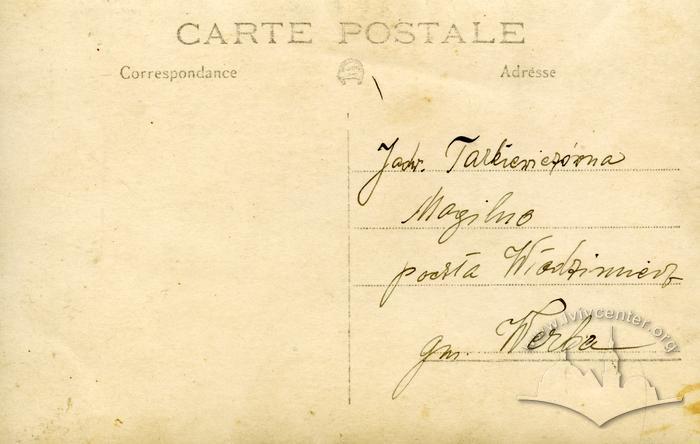 CARTE POSTALE
Correspondance
Adresse
Jadw. Tarkiewiczówna
Mogilno
poczta Włodzimierz
gm. Werba
www.lvivcenter.org